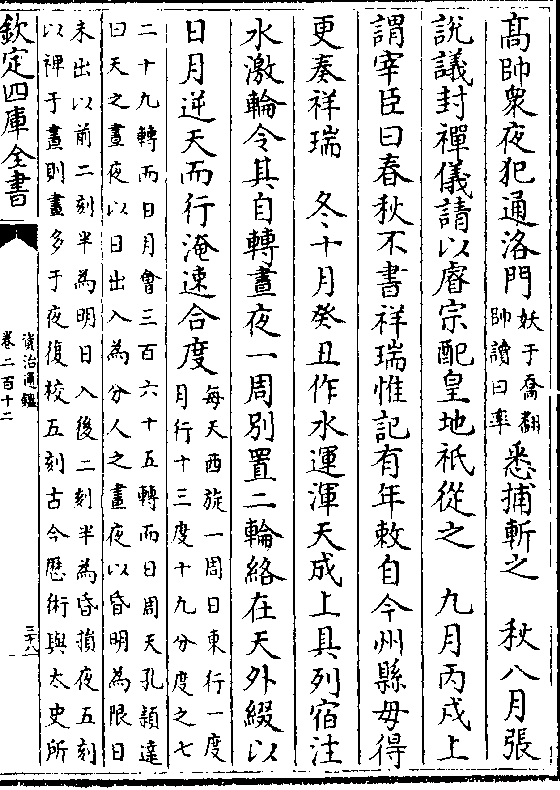 髙帥衆夜犯通洛門妖于喬翻
帥讀曰率悉捕斬之　秋八月張
說議封禪儀請以睿宗配皇地祇從之　九月丙戌上
謂宰臣曰春秋不書祥瑞惟記有年敕自今州縣毋得
更奏祥瑞　冬十月癸丑作水運渾天成上具列宿注
水激輪令其自轉晝夜一周别置二輪絡在天外綴以
日月逆天而行淹速合度每天西旋一周日東行一度
月行十三度十九分度之七
二十九轉而日月會三百六十五轉而日周天孔穎達
曰天之晝夜以日出入為分人之晝夜以昏明為限日
未出以前二刻半為明日入後二刻半為昏損夜五刻
以禆于晝則晝多于夜復校五刻古今歴術與太史所
欽定四庫全書
資治通鑑
卷二百十二
三十八